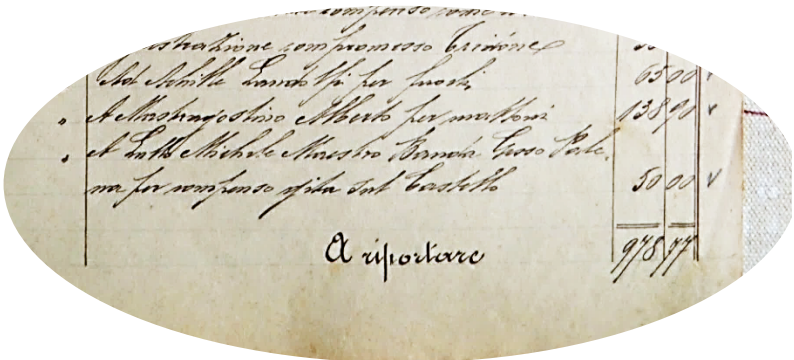 compenso come
strazione compromesso Tridóne
Ad Achille Landolfi per fuochi 65 00
" A Mastragostino Alberto per mattoni 138 90
" A Gatto Michele Maestro Banda Gesso Pale-
na per compenso gita sul Castello 50 00
A riportare 978 77